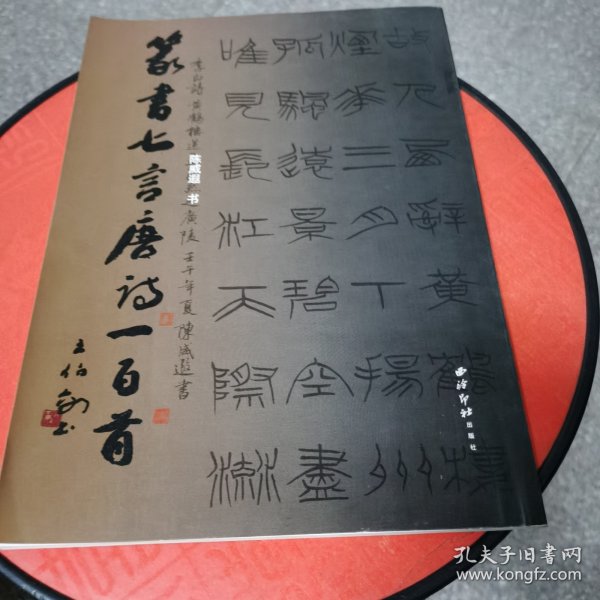 篆書七言唐诗一百首
王伯敏书
陈威遐 书
故人西辭黃鶴樓
煙華三月下揚州
孤颿遠景碧空盡
唯見長江天際流
李白詩黄鶴樓送
廣陵 壬午年夏 陳威遐書
西泠印社
出版社
孔夫子旧书网
www.kongfz.com